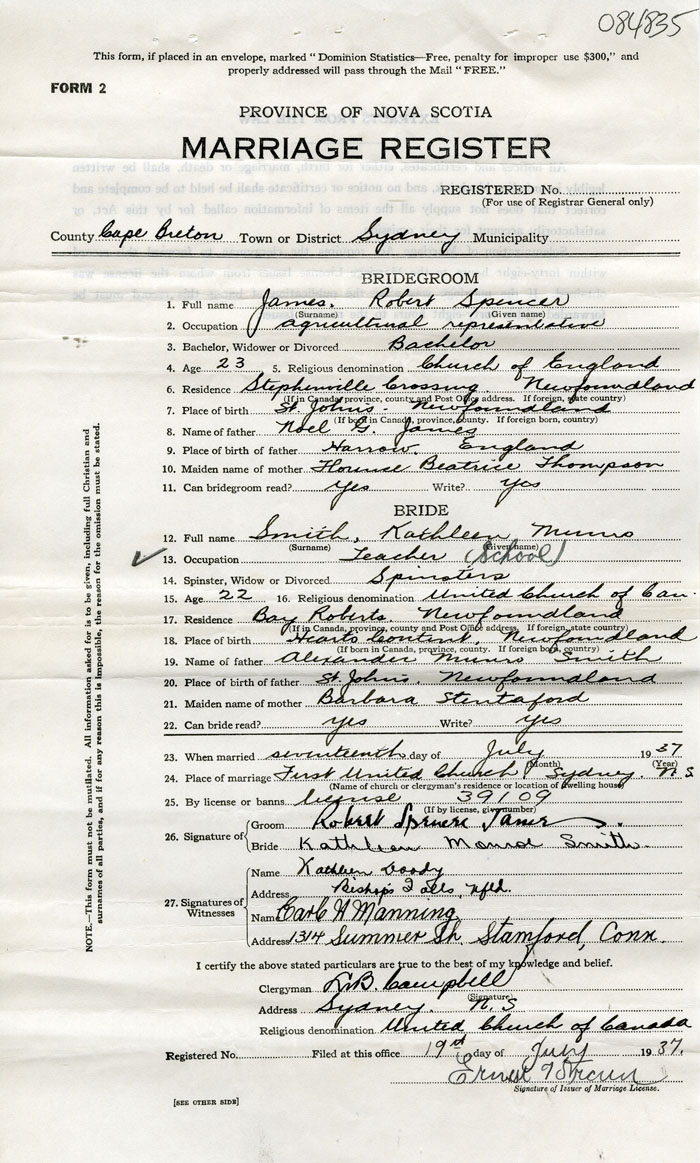 084835
This form, if placed in an envelope, marked “ Dominion Statistics—Free, penalty for improper use $300,” and
properly addressed will pass through the Mail “ FREE.”
FORM 2
PROVINCE OF NOVA SCOTIA
MARRIAGE REGISTER
REGISTERED No.
(For use of Registrar General only)
County Cape Breton Town or District Sydney Municipality
BRIDEGROOM
1. Full name James, Robert Spencer
(Surname) (Given name)
2. Occupation agricultural representative
3. Bachelor, Widower or Divorced Bachelor
4. Age 23 5. Religious denomination Church of England
6. Residence Stephenville Crossing. Newfoundland
(If in Canada, province, county and Post Office address. If foreign, state country)
7. Place of birth St Johns. Newfoundland
(If born in Canada, province, county. If foreign born, country)
8. Name of father Noel G. James
9. Place of birth of father Harrow. England
10. Maiden name of mother Florence Beatrice Thompson
11. Can bridegroom read? yes Write? yes
BRIDE
12. Full name Smith, Kathleen Munro
(Surname) (Given name)
13. Occupation Teacher (School)
14. Spinster, Widow or Divorced Spinsters
15. Age 22 16. Religious denomination United Church of Can.
17. Residence Bay Roberts. Newfoundland
(If in Canada, province, county and Post Office address. If foreign, state country)
18. Place of birth Hearts Content, Newfoundland
(If born in Canada, province, county. If foreign born, country)
19. Name of father Alexander Munro Smith
20. Place of birth of father St Johns, Newfoundland
21. Maiden name of mother Barbara Stentaford
22. Can bride read? yes Write? yes
23. When married seventeenth day of July 1937
(Month) (Year)
24. Place of marriage First United Church, Sydney. N S.
(Name of church or clergyman's residence or location of dwelling house)
25. By license or banns license 39109
(If by license, give number)
26. Signature of
Groom Robert Spencer James
Bride Kathleen Monroe Smith.
27. Signatures of Witnesses
Name Kathleen
Address Bishops Falls, Nfld.
Name Carl W Manning
Address 1314 Summer St. Stamford, Conn.
I certify the above stated particulars are true to the best of my knowledge and belief.
Clergyman Campbell
(Signature)
Address Sydney. N.S
Religious denomination United Church of Canada
Registered No. Filed at this office 19 day of July 1937.
Ernest
Signature of Issuer of Marriage License.
[SEE OTHER SIDE]
NOTE.—This form must not be mutilated. All information asked for is to be given, including full Christian and
surnames of all parties, and if for any reason this is impossible, the reason for the omission must be stated.